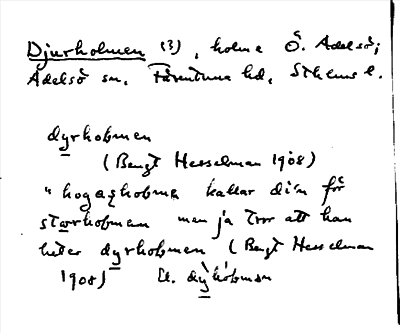 Djurholmen (?), holme Ö. Adelsö;
Adelsö sn. Färentuna hd, Sthms l.
dyrholmen
(Bengt Hesselman 1908)
" hogaholmen kallar di'n för
storholmen men ja tror att han
heter dyrholmen (Bengt Hesselman
1908) El. dy̍rhòlmen